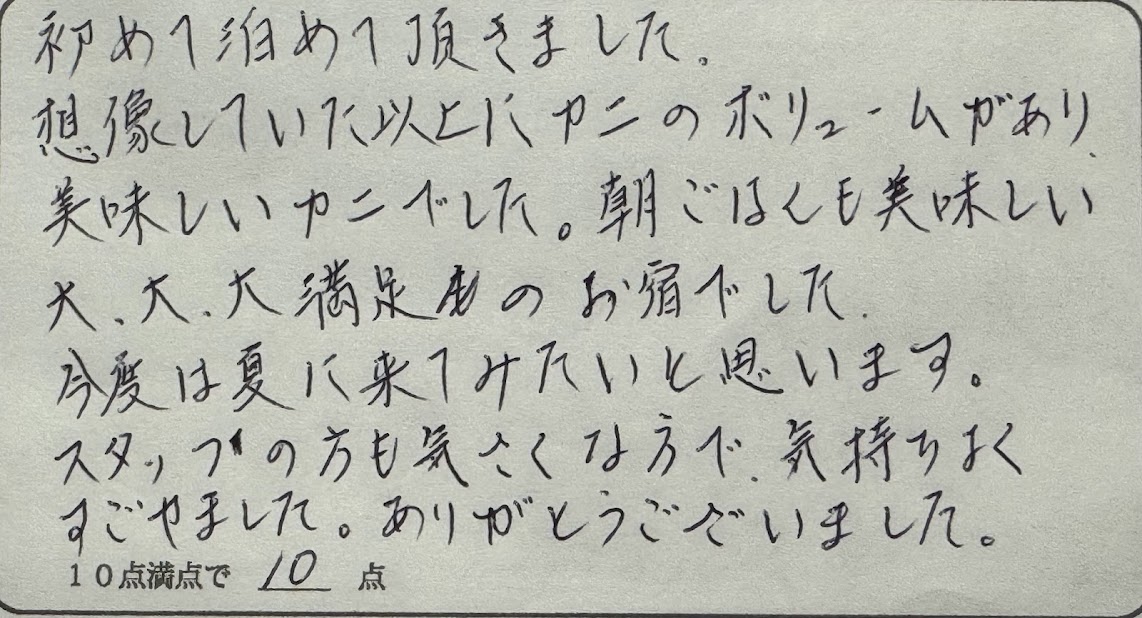 初めて泊めて頂きました。
想像していた以上にカニのボリュームがあり、
美味しいカニでした。朝ごはんも美味しい
大、大、大満足の お宿でした。
今度は夏に来てみたいと思います。
スタッフの方も気さくな方で、気持ちよく
すごせました。ありがとうございました。
10点満点で 10 点